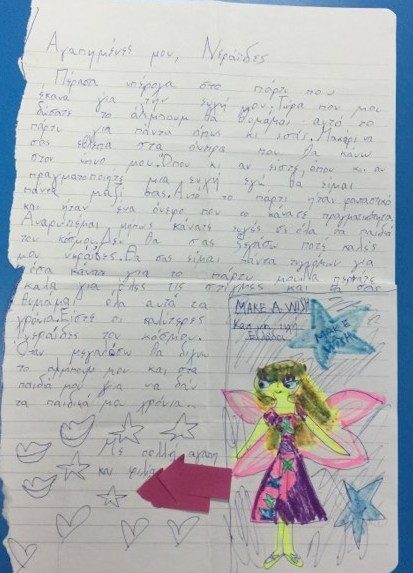 Αγαπημένες μου, Νεράιδες
Πέρασα υπέροχα στο πάρτι που
έκανα για την ευχή μου. Τώρα που μου
δώσατε το άλμπουμ θα θυμάμαι αυτό το
πάρτυ για πάντα όμως κι εσάς. Μακάρι να
σας έβλεπα στα όνειρα που θα κάνω
στον ύπνο μου. Όπου κι αν είστε, όπου κι αν
πραγματοποιήτε μια ευχή εγώ θα είμαι
πάντα μαζί σας. Αυτό το πάρτι ήταν φανταστικό
και ήταν ένα όνειρο που το κάνατε πραγματικότητα.
Αναρωτιέμαι μήπως κάνατε ευχές σε όλα τα παιδιά
του κόσμου. Δεν θα σας ξεχάσω ποτέ καλές
μου νεράιδες. Θα σας είμαι πάντα ευγνώμων για
όσα κάνατε για το πάρτυ μου. Να περνάτε
καλά για όλες τις στιγμές και θα σας
θυμάμαι όλα αυτά τα
χρόνια. Είστε οι καλύτερες
νεράιδες του κόσμου.
Όταν μεγαλώσω θα δίχνω
το άλμπουμ μου και στα
παιδιά μου για να δουν
τα παιδικά μου χρόνια.
Με πολλή αγάπη
και φιλιά
MAKE A WISH
Κάνε μια ευχή
Ελλάδα
MAKE A
WISH